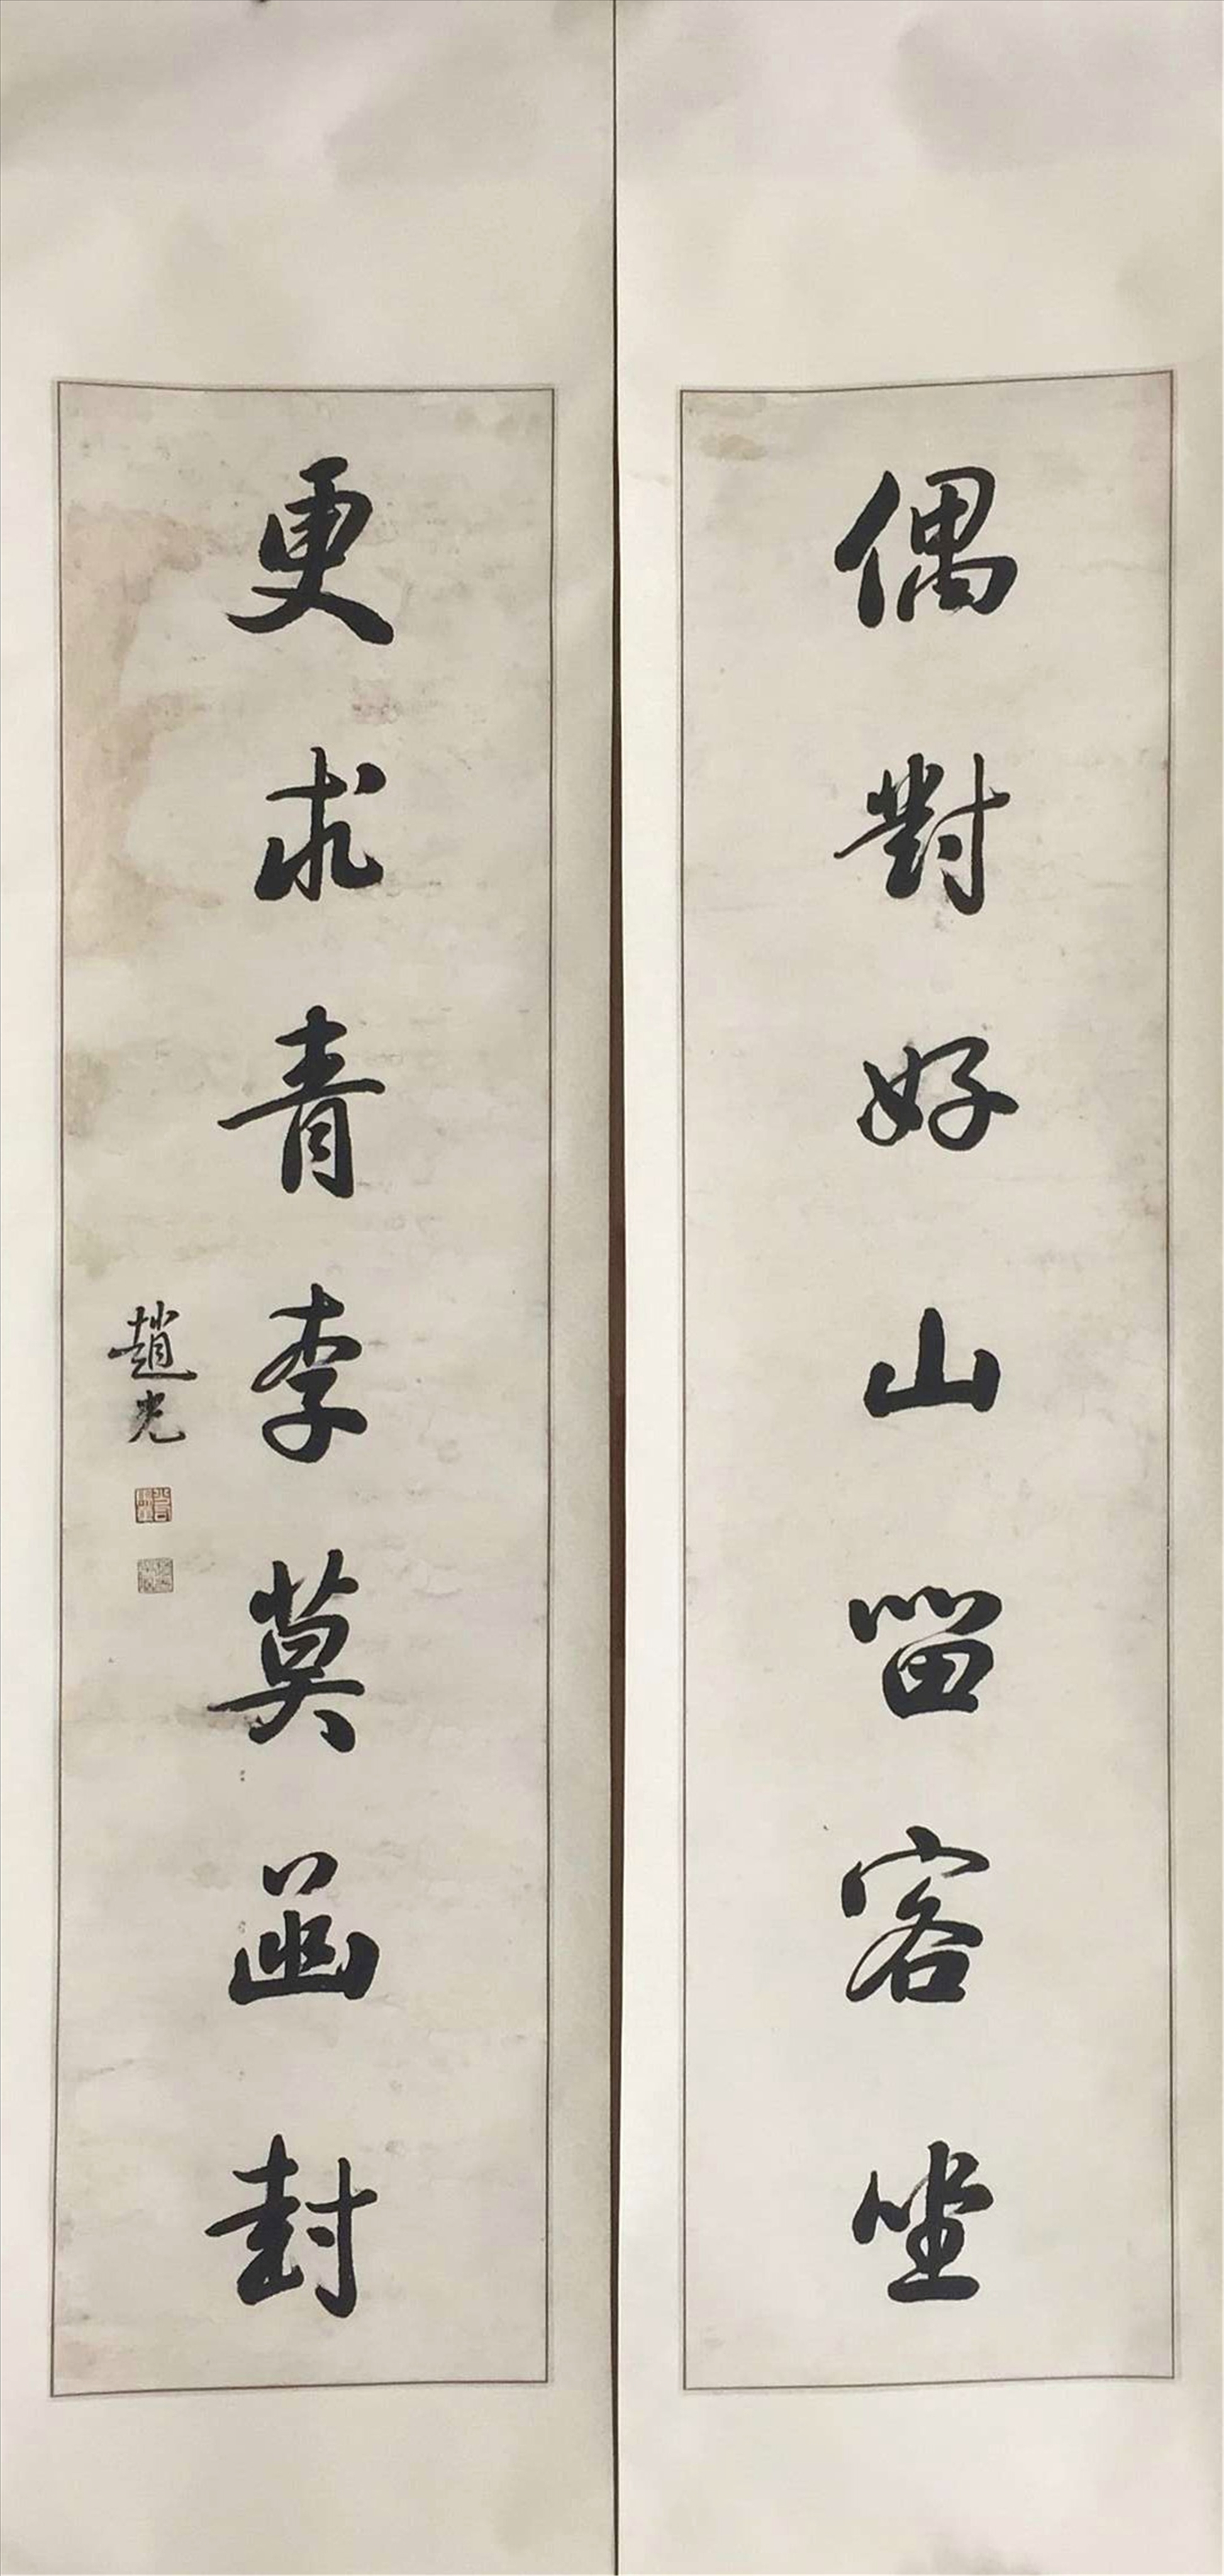 偶對好山畱客坐
更求青李莫函封
趙光